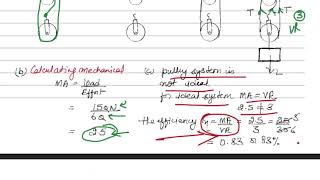 T T ③
VR
L
(b) Calculating mechanical
MA = Load
Effort
= 15Q N
6Q
= 2.5
(c) pulley system is
not ideal
for ideal system MA = VR
2.5 ≠ 3
The efficiency η = MA = 2.5 = 25
VR 3
= 0.83 or 83%